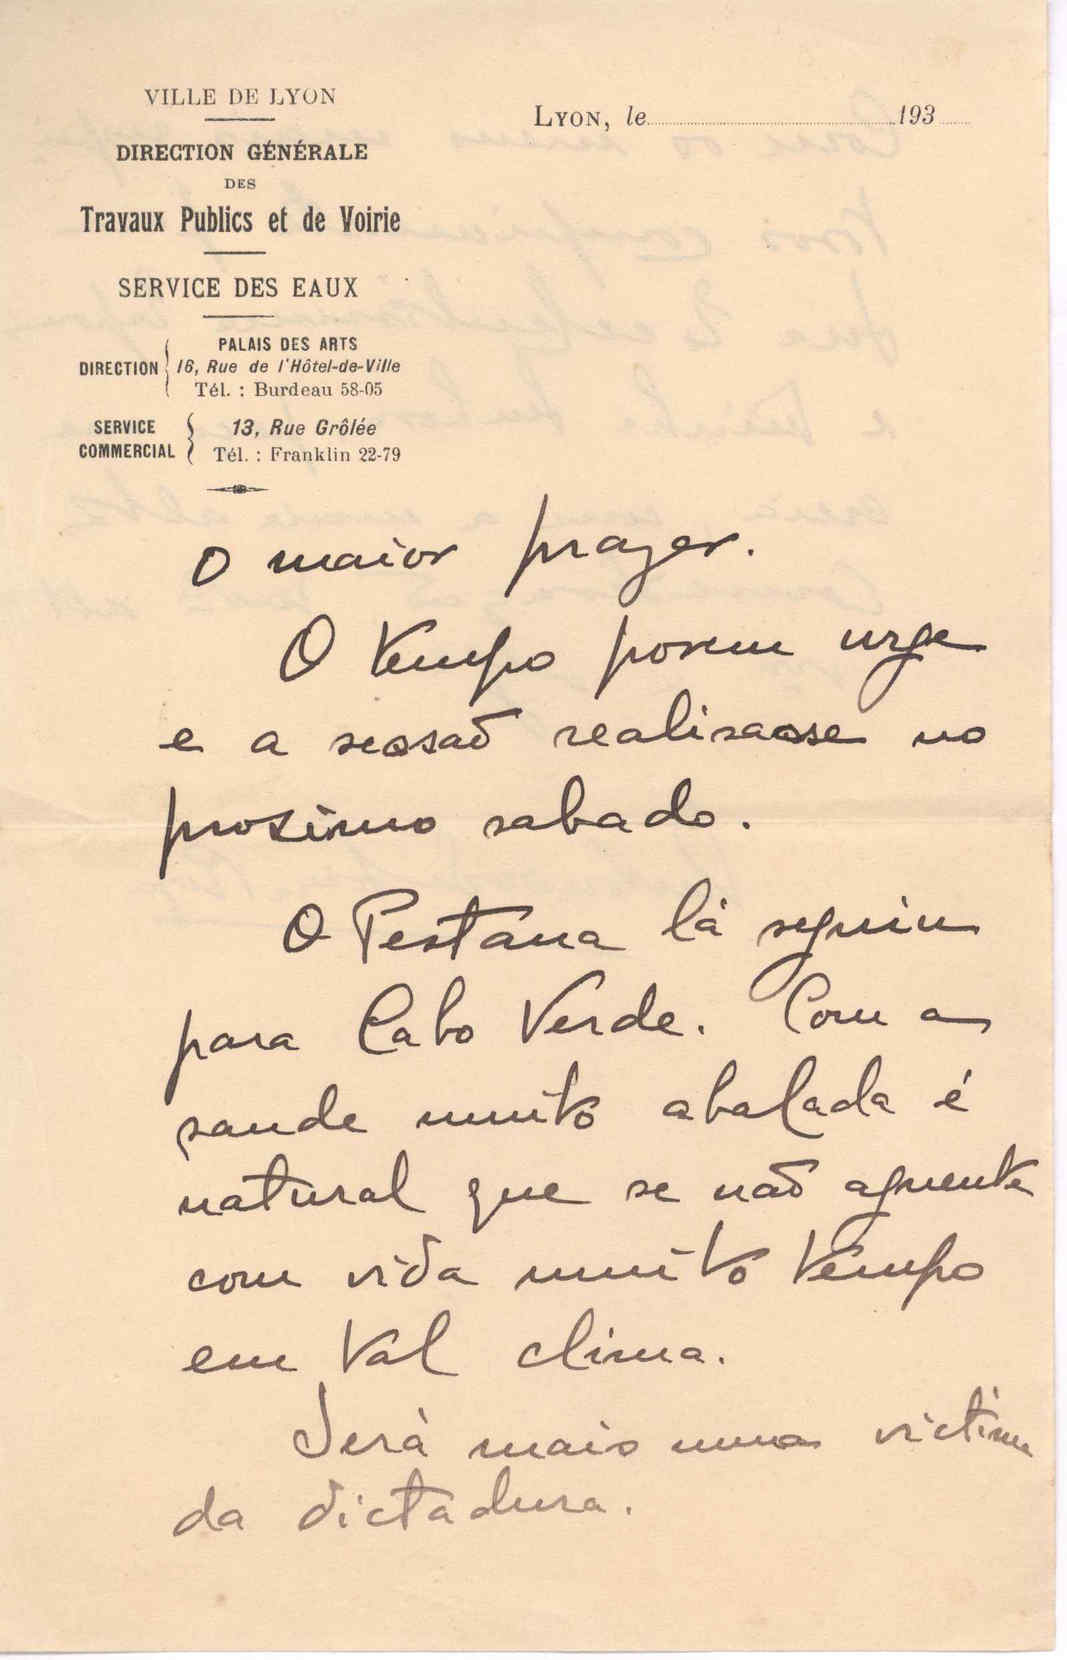 VILLE DE LYON
DIRECTION GÉNÉRALE
DES
Travaux Publics et de Voirie
SERVICE DES EAUX
DIRECTION
PALAIS DES ARTS
16, Rue de l'Hôtel-de-Ville
Tél. : Burdeau 58-05
SERVICE
COMMERCIAL
13, Rue Grôlée
Tél. : Franklin 22-79
LYON, le 193
o maior prazer.
O tempo porem urge
e a sessaõ realisa-se no
proximo sabado.
O Pestana lá seguiu
para Cabo Verde. Com a
saude muito abalada é
natural que se naõ aguente
com vida muito tempo
em tal clima.
Será mais uma victima
da dictadura.